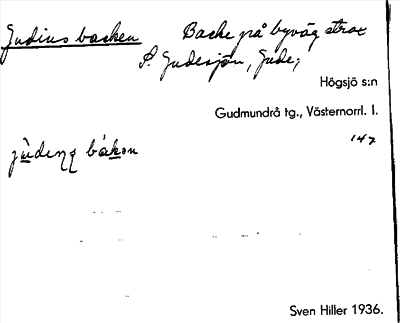 Gudins backen Backe på byväg strax
S. Gudesjön, Gude,
Högsjö s:n
Gudmundrå tg., Västernorrl. l.
147
Sven Hiller 1936.